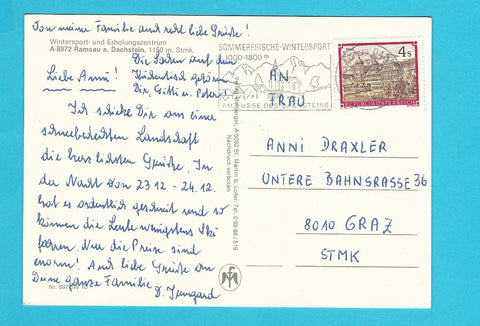 Von meine Familie auch recht liebe Grüße!
Wintersport- und Erholungszentrum
A-8972 Ramsau a. Dachstein, 1150 m, Stmk.
Die Sachen auf dem
gehören
Dir, Gitti u. Peter!
Liebe Anni!
Ich schicke Dir aus einer
schneebedeckten Landschaft
die herzlichsten Grüße. In
der Nacht vom 23.12 - 24.12.
hat es ordentlich geschneit und so
können die Leute wenigstens Ski
fahren. Nur die Preise sind
enorm! Auch liebe Grüße an
Deine ganze Familie
D. Irmgard
SOMMERFRISCHE-WINTERSPORT
1000-1800 m
AM FUSSE DES DACHSTEINS
4 S
REPUBLIK ÖSTERREICH
AN
FRAU
ANNI DRAXLER
UNTERE BAHNSRASSE 36
8010 GRAZ
STMK
A-5092 St. Martin b. Lofer, Tel. 0 65 88 / 519
Nachdruck verboten